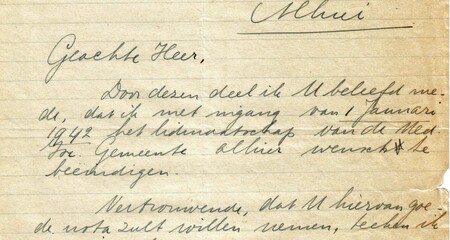 Alhier
Geachte Heer,
Door dezen deel ik U beleefd me-
de, dat ik met ingang van 1 Januari
1942 het lidmaatschap van de Ned.
Isr. Gemeente alhier wensch te
beëindigen.
Vertrouwende, dat U hiervan goe-
de nota zult willen nemen, teeken ik